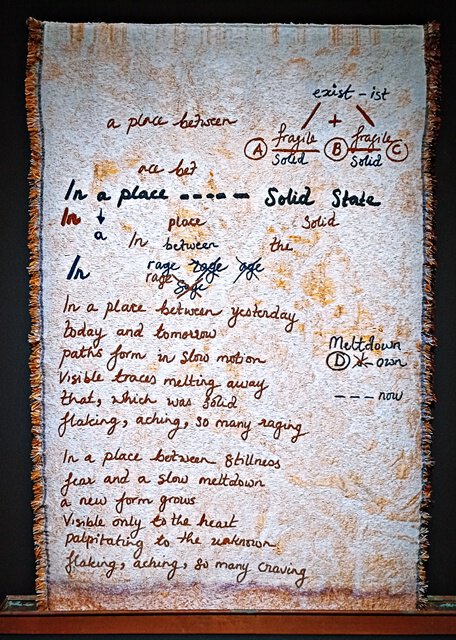 exist - ist
a place between
+
fragile fragile
A Solid B Solid C
ace bet
In a place ----- Solid State
In place Solid
a In between the
In rage rage age
rage
In a place between yesterday
today and tomorrow
paths form in slow motion
Visible traces melting away
that, which was solid
flaking, aching, so many raging
Meltdown
D own
--- now
In a place between stillness
fear and a slow meltdown
a new form grows
Visible only to the heart
palpitating to the unknown
flaking, aching, so many craving